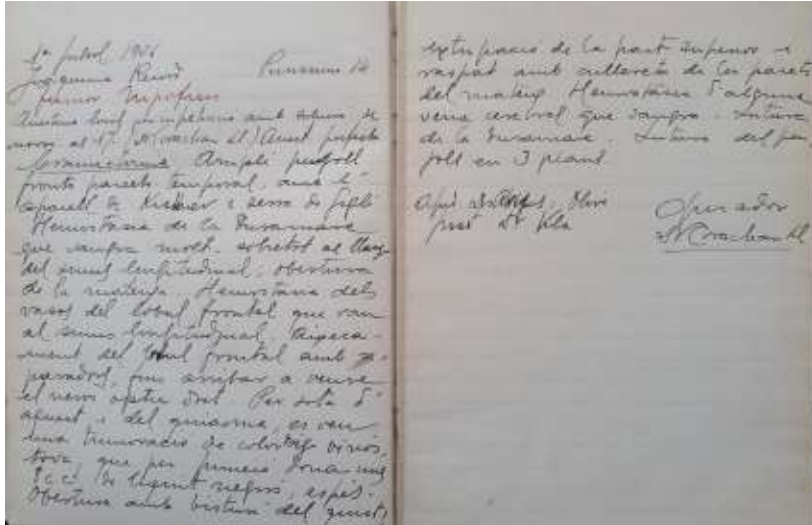 1er juliol 1926
Joaquima Pensionis 14
Tumor hipofisis
Anestesia local completada amb
Dr Corachan Ll) Anestesia perfecta
Craniectomia Ample penjoll
fronto parieto temporal, amb l'
aparell de i serra de Gigli
Hemostasia de la Duramare
que sangra molt sobretot al llarg
del sinus longitudinal. Obertura
de la mateixa Hemostasia dels
vasos del lobul frontal que van
al sinus longitudinal. Aixeca-
ment del lobul frontal amb se-
paradors, fins arribar a veure
el nervi optic dret Per sota d'
aquest i del quiasma, es veu
una tumoracio de color vinos,
tova, que per puncio dona uns
8 c.c. de liquit negros, espés.
Obertura amb bisturi del quist,
extirpacio de la part superior i
raspat amb cullereta de les parets
del mateix Hemostasia d'alguna
vena cerebral que sangra. Sutura
de la Duramare. Sutura del pen
joll en 3 plans
Olive
Dr Vila
Operador
Dr Corachan Ll